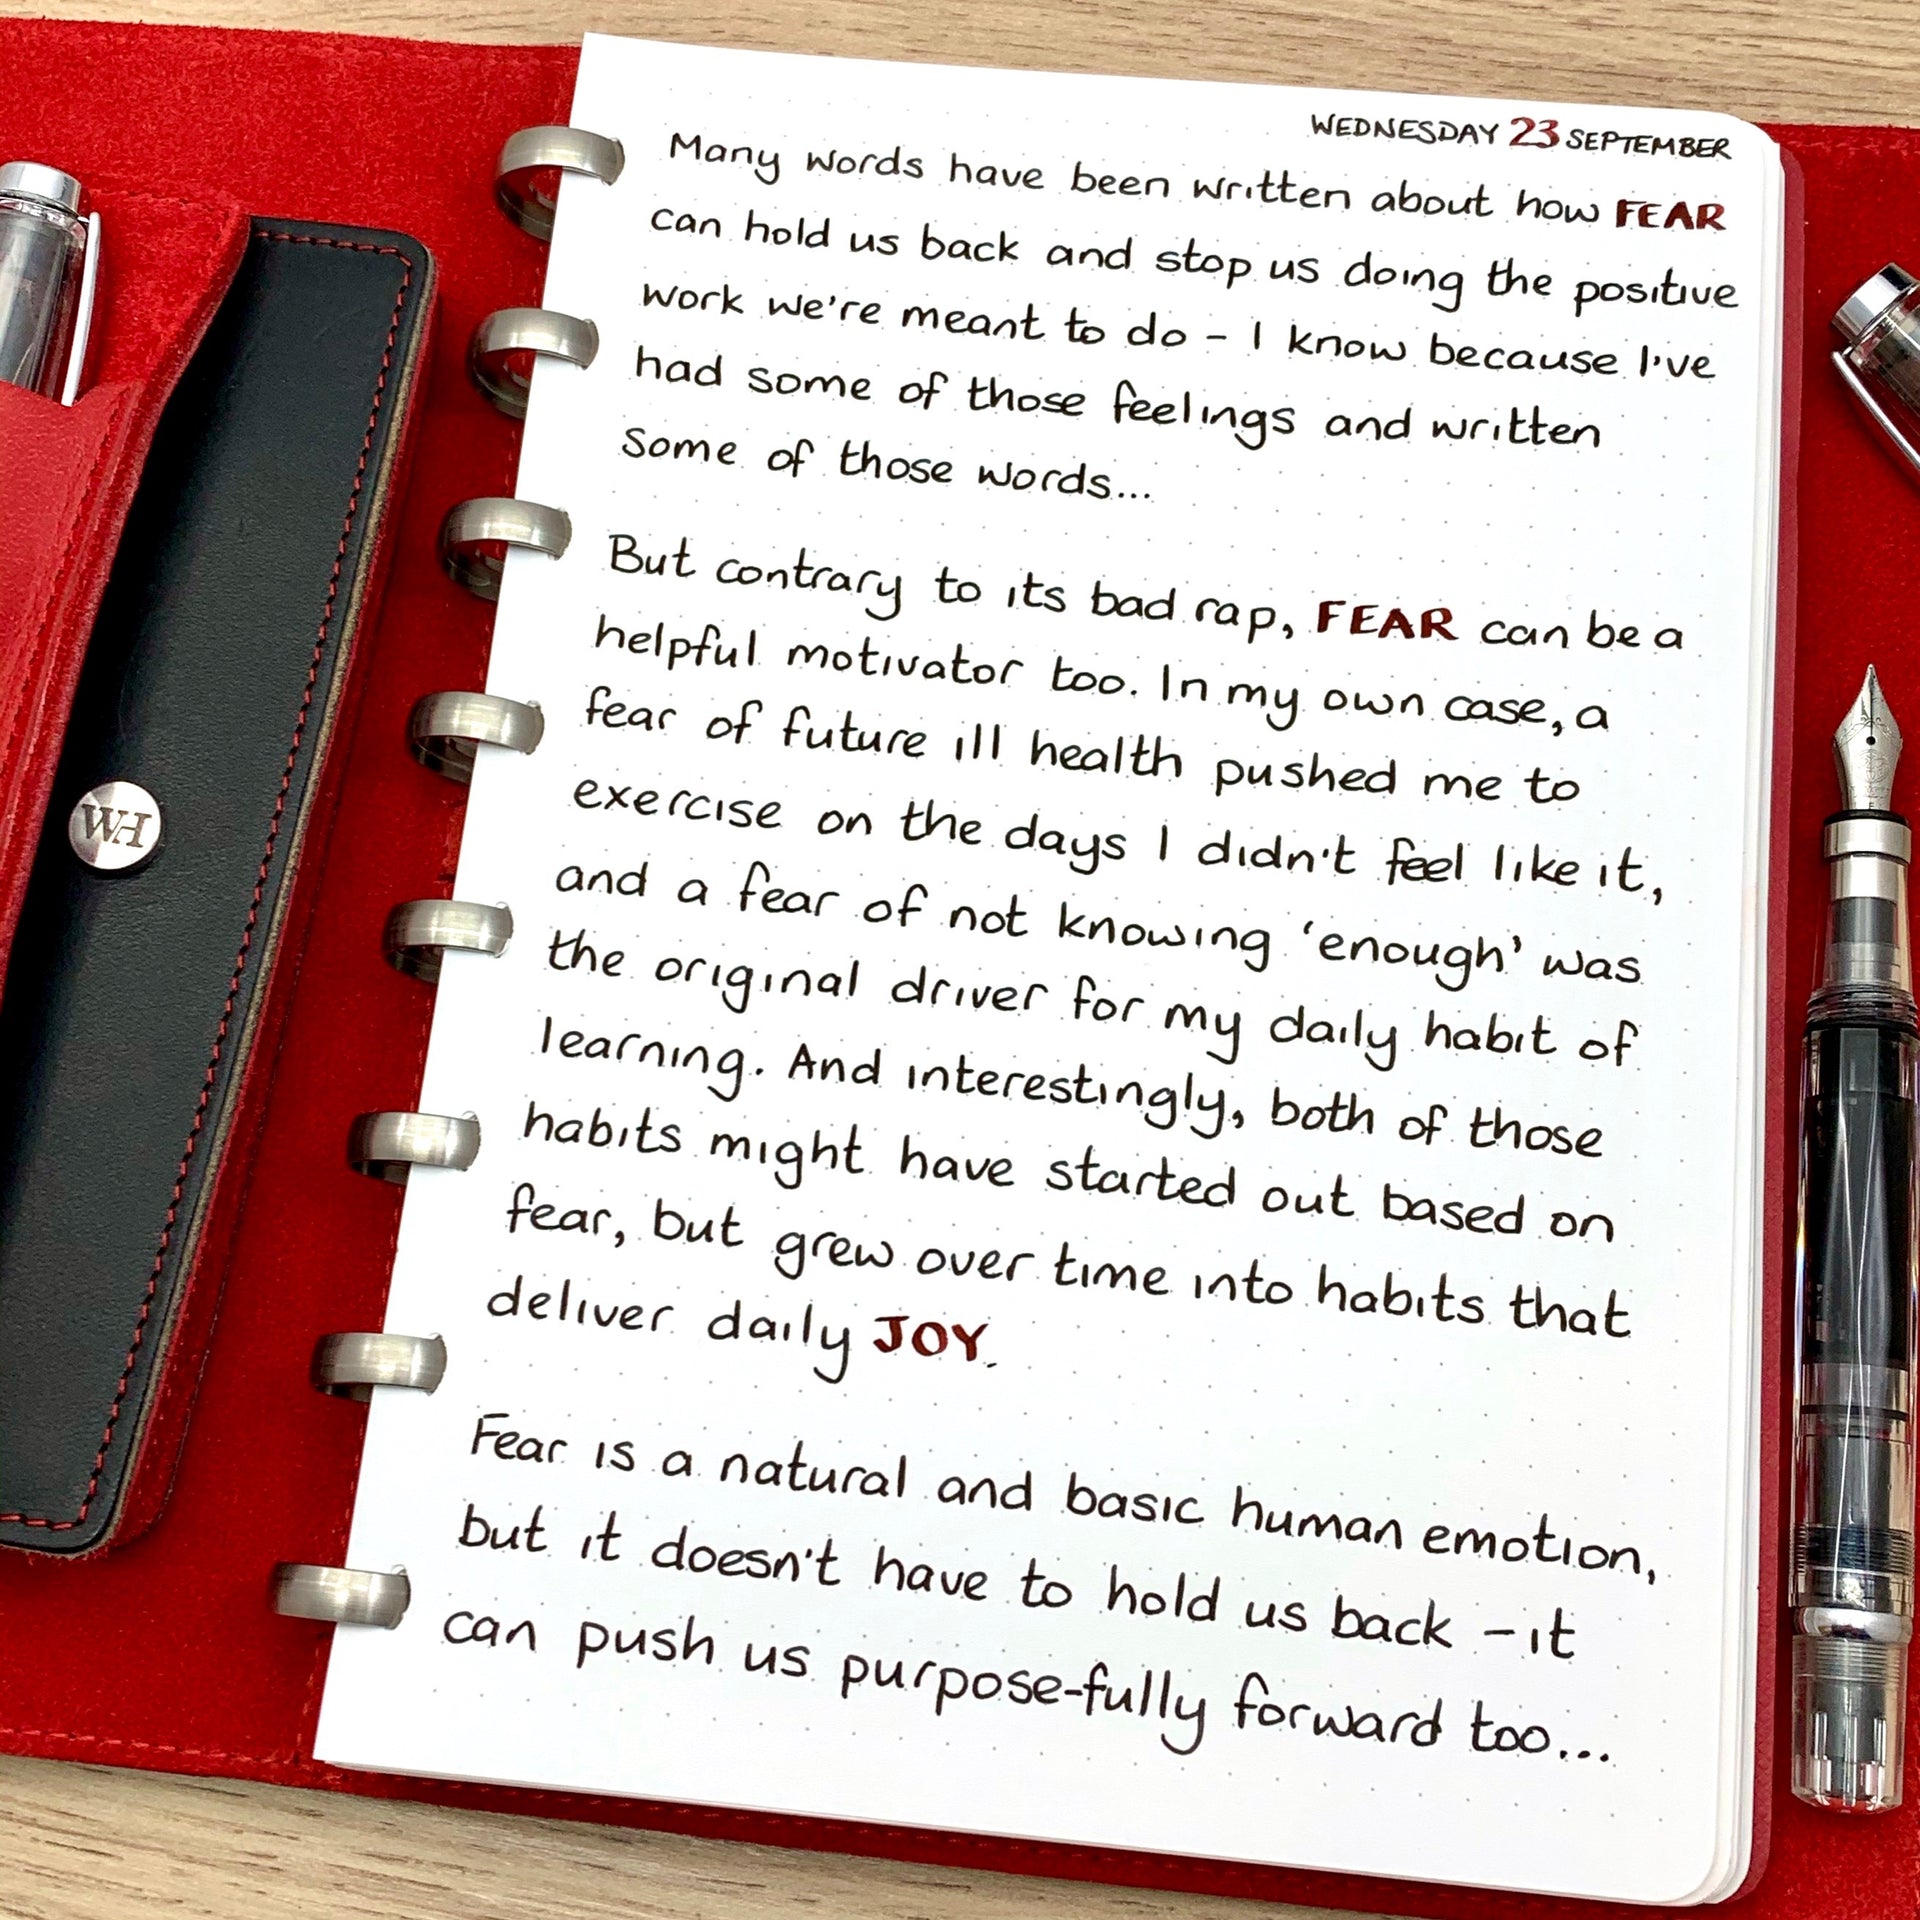 WEDNESDAY 23 SEPTEMBER
Many words have been written about how FEAR
can hold us back and stop us doing the positive
work we're meant to do - I know because I've
had some of those feelings and written
some of those words...
But contrary to its bad rap, FEAR can be a
helpful motivator too. In my own case, a
fear of future ill health pushed me to
exercise on the days I didn't feel like it,
and a fear of not knowing 'enough' was
the original driver for my daily habit of
learning. And interestingly, both of those
habits might have started out based on
fear, but grew over time into habits that
deliver daily JOY.
Fear is a natural and basic human emotion,
but it doesn't have to hold us back - it
can push us purpose-fully forward too...
WH